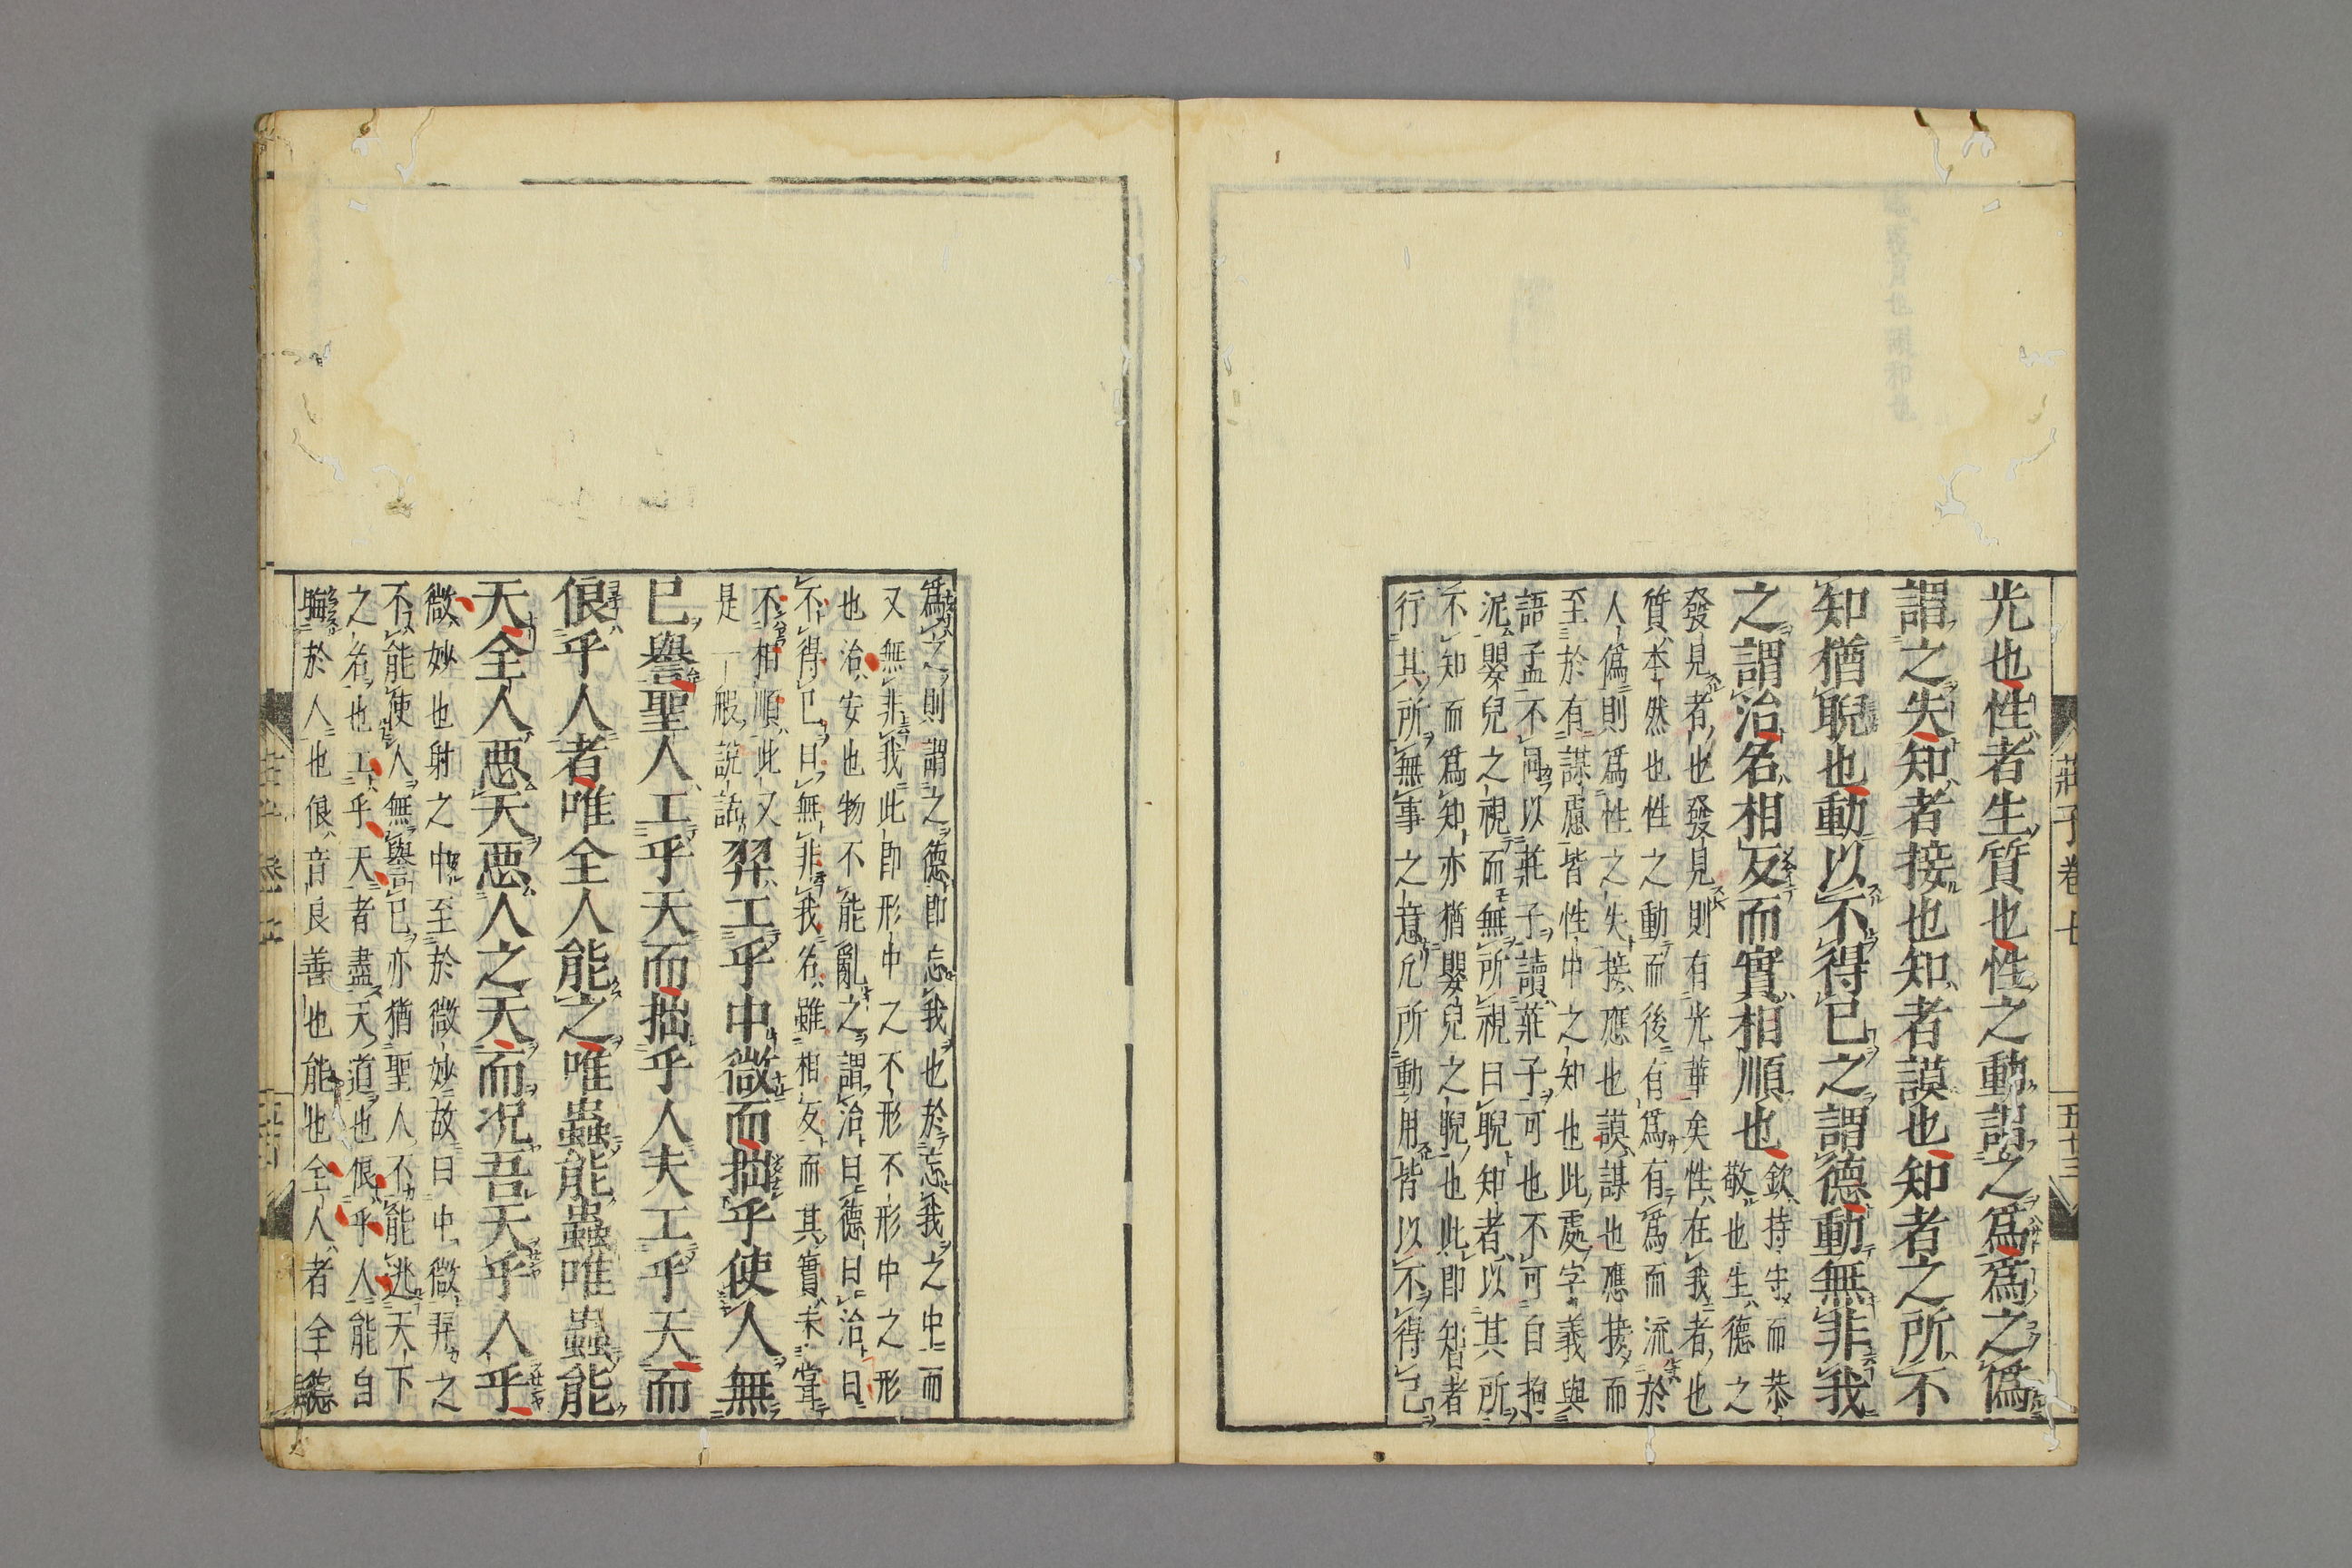 莊子卷七
五十三
光也性者生質也性之動謂之爲爲之僞
謂之失知者接也知者謨也知者之所不
知猶睨也動以不得已之謂德動無非我
之謂治名相反而實相順也欽持守而恭
敬也生德之
發見者也發見則有光華矣性在我者也
質本然也性之動而後有爲有爲而流於
人僞則爲性之失接應也謨謀也應接而
至於有謀慮皆性中之知也此處字義與
語孟不同以莊子讀莊子可也不可自拘
泥嬰兒之視而無所視曰睨知者以其所
不知而爲知亦猶嬰兒之睨也此即智者
行其所無事之意凡所動用皆以不得已
爲之則謂之德即忘我也於忘我之中而
又無非我此即形中之不形不形中之形
也治安也物不能亂之謂治曰德曰治曰
不得已曰無非我名雖相反而其實未嘗
不相順此又
是一般說話羿工乎中微而拙乎使人無
已譽聖人工乎天而拙乎人夫工乎天而
俍乎人者唯全人能之唯蟲能蟲唯蟲能
天全人惡天惡人之天而况吾天乎人乎
微妙也射之中至於微妙故曰中微羿之
不能使人無譽已亦猶聖人不能逃天下
之名也工乎天者盡天道也俍乎人能自
晦於人也俍音良善也能也全人者全德